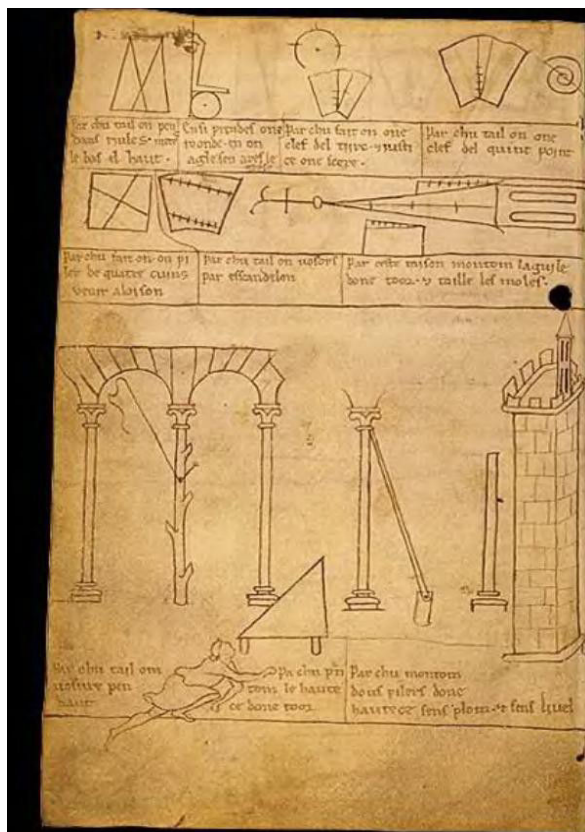 Par chu tail on
le bas el haut.
Ensi prendes one
roonde en on
agle sen aves le
Par chu fait on one
clef del tirc. 7 iusti
ce one scere.
Par chu tail on one
clef del quint point
Par chu fait on on pi
ler de quatre cuins
venir a loison
Par chu tail on vosors
par esscandelon
Par ceste raison montom laguile
done toor. 7 taille les moles.
Par chu tail om
vosure pen
haut
Pa chu
tom le haute
ce done toor
Par chu montom
dous pilers done
hautece sens plom. 7 sens livel